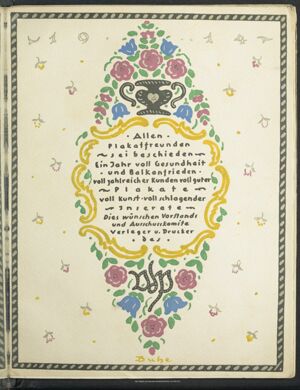 Allen
Plakatfreunden
sei beschieden
Ein Jahr voll Gesundheit
und Balkanfrieden
voll zahlreicher Kunden voll guter
Plakate
voll Kunst · voll schlagender
Inserate
Dies wünschen Vorstands
und Ausschuskomite
Verleger u. Drucker
des
VdP
Buhe